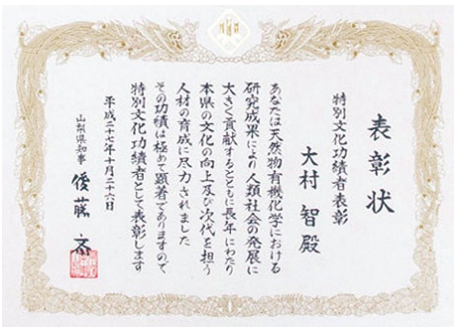 表彰状
特別文化功績者表彰
大村智殿
あなたは天然物有機化学における
研究成果により人類社会の発展に
大きく貢献するとともに長年にわたり
本県の文化の向上及び次代を担う
人材の育成に尽力されました
その功績は極めて顕著でありますので
特別文化功績者として表彰します
平成二十七年十月二十六日
山梨県知事 後藤斎